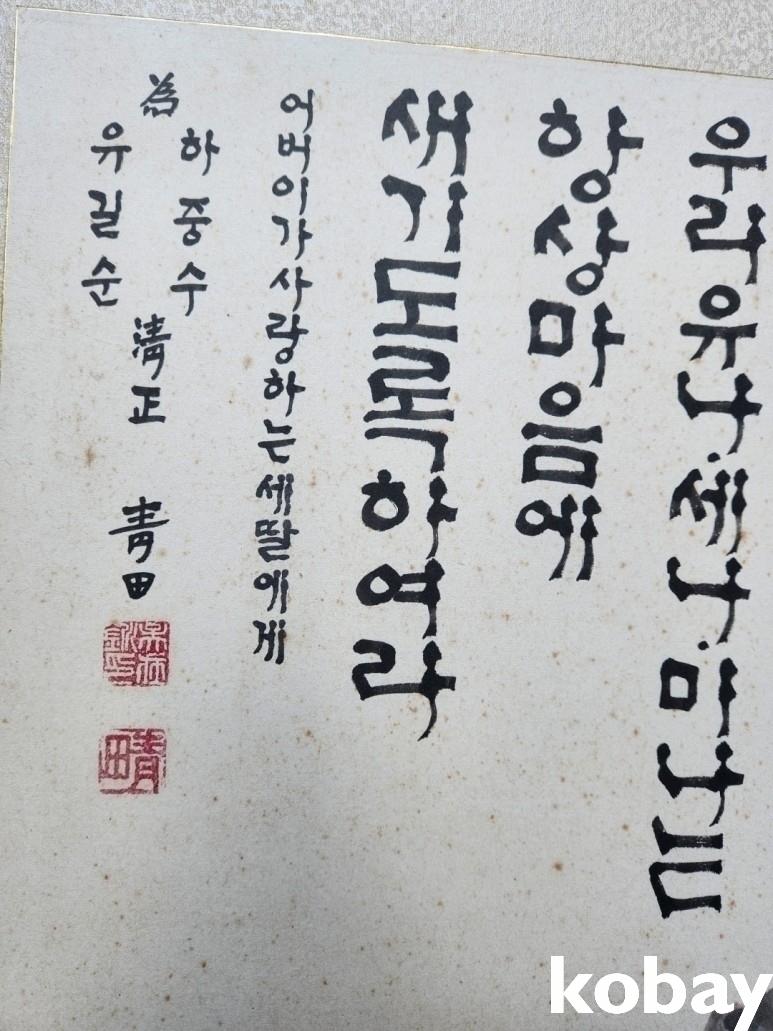 우리유나·세나·미나는
항상마음에
새기도록하여라
어버이가사랑하는세딸에게
為
하중수
유길순
淸正 靑田
靑田